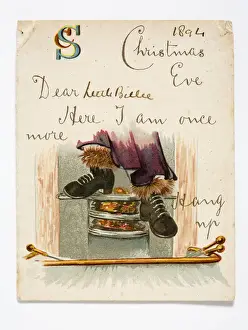 SC
1894
Christmas
Eve
Dear Little Billee
Here I am once
more
Hang
up